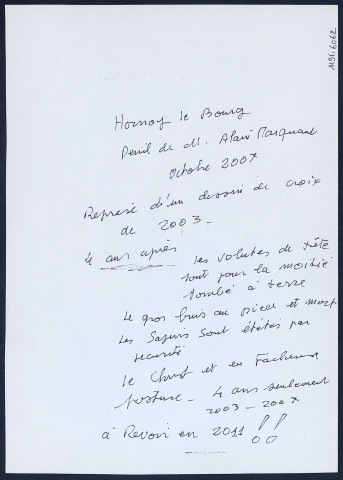 1195.6062
Hornoy le Bourg
Deuil de M. Alain Marquant
Octobre 2007
Represe d'un dessin de croix
de 2003 -
4 ans après
les volutes de tête
sont pour la moitié
tombé à terre
Le gros buis au pied est mort
Les Sapins sont étêtés par
sécurité
Le Christ est en Facheuse
posture - 4 ans seulement
2003 - 2007
à Revoir en 2011 !!